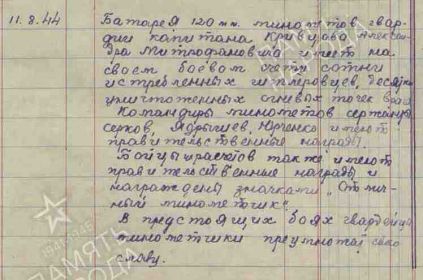 11.8.44 Батарея 120 мм. минометов гвар-
дии капитана Кривцова Александ-
ра Митрофановича имеет на
своем боевом счету сотни
истребленных гитлеровцев, десятки
уничтоженных огневых точек врага
Командиры минометов сержанты
Серков, Юрченко имеют
правительственные награды.
Бойцы расчетов также имеют
правительственные награды и
награждены значками „Отлич-
ный минометчик".
В предстоящих боях гвардейцы
минометчики преумножат свою
славу.
ПАМЯТЬ
НАРОДА